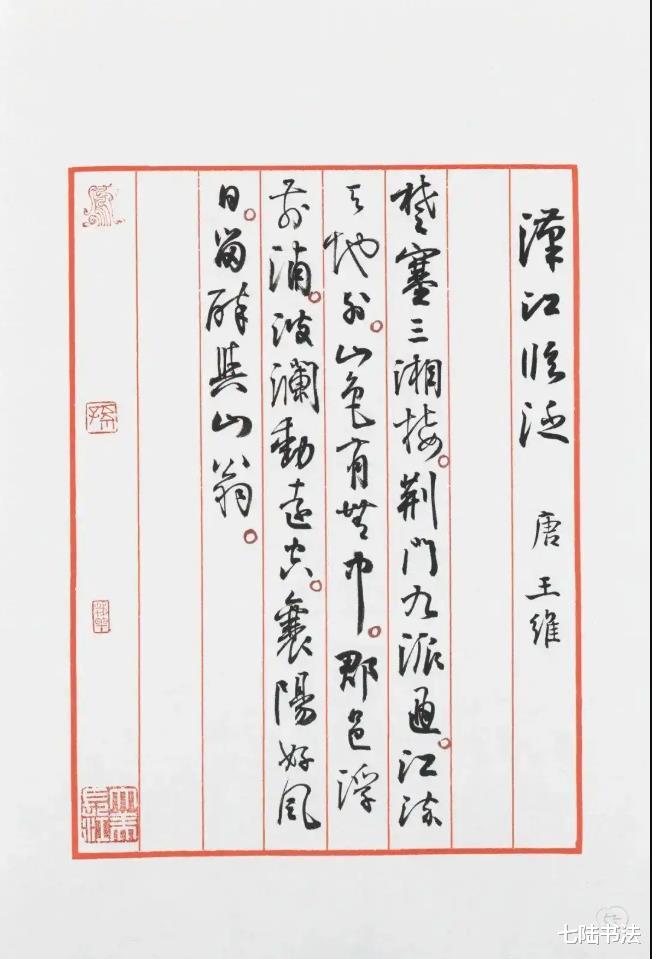 漢江臨泛
唐 王維
楚塞三湘接。荆門九派通。江流
天地外。山色有無中。郡邑浮
前浦。波瀾動遠空。襄陽好風
日。留醉與山翁。
七陆书法